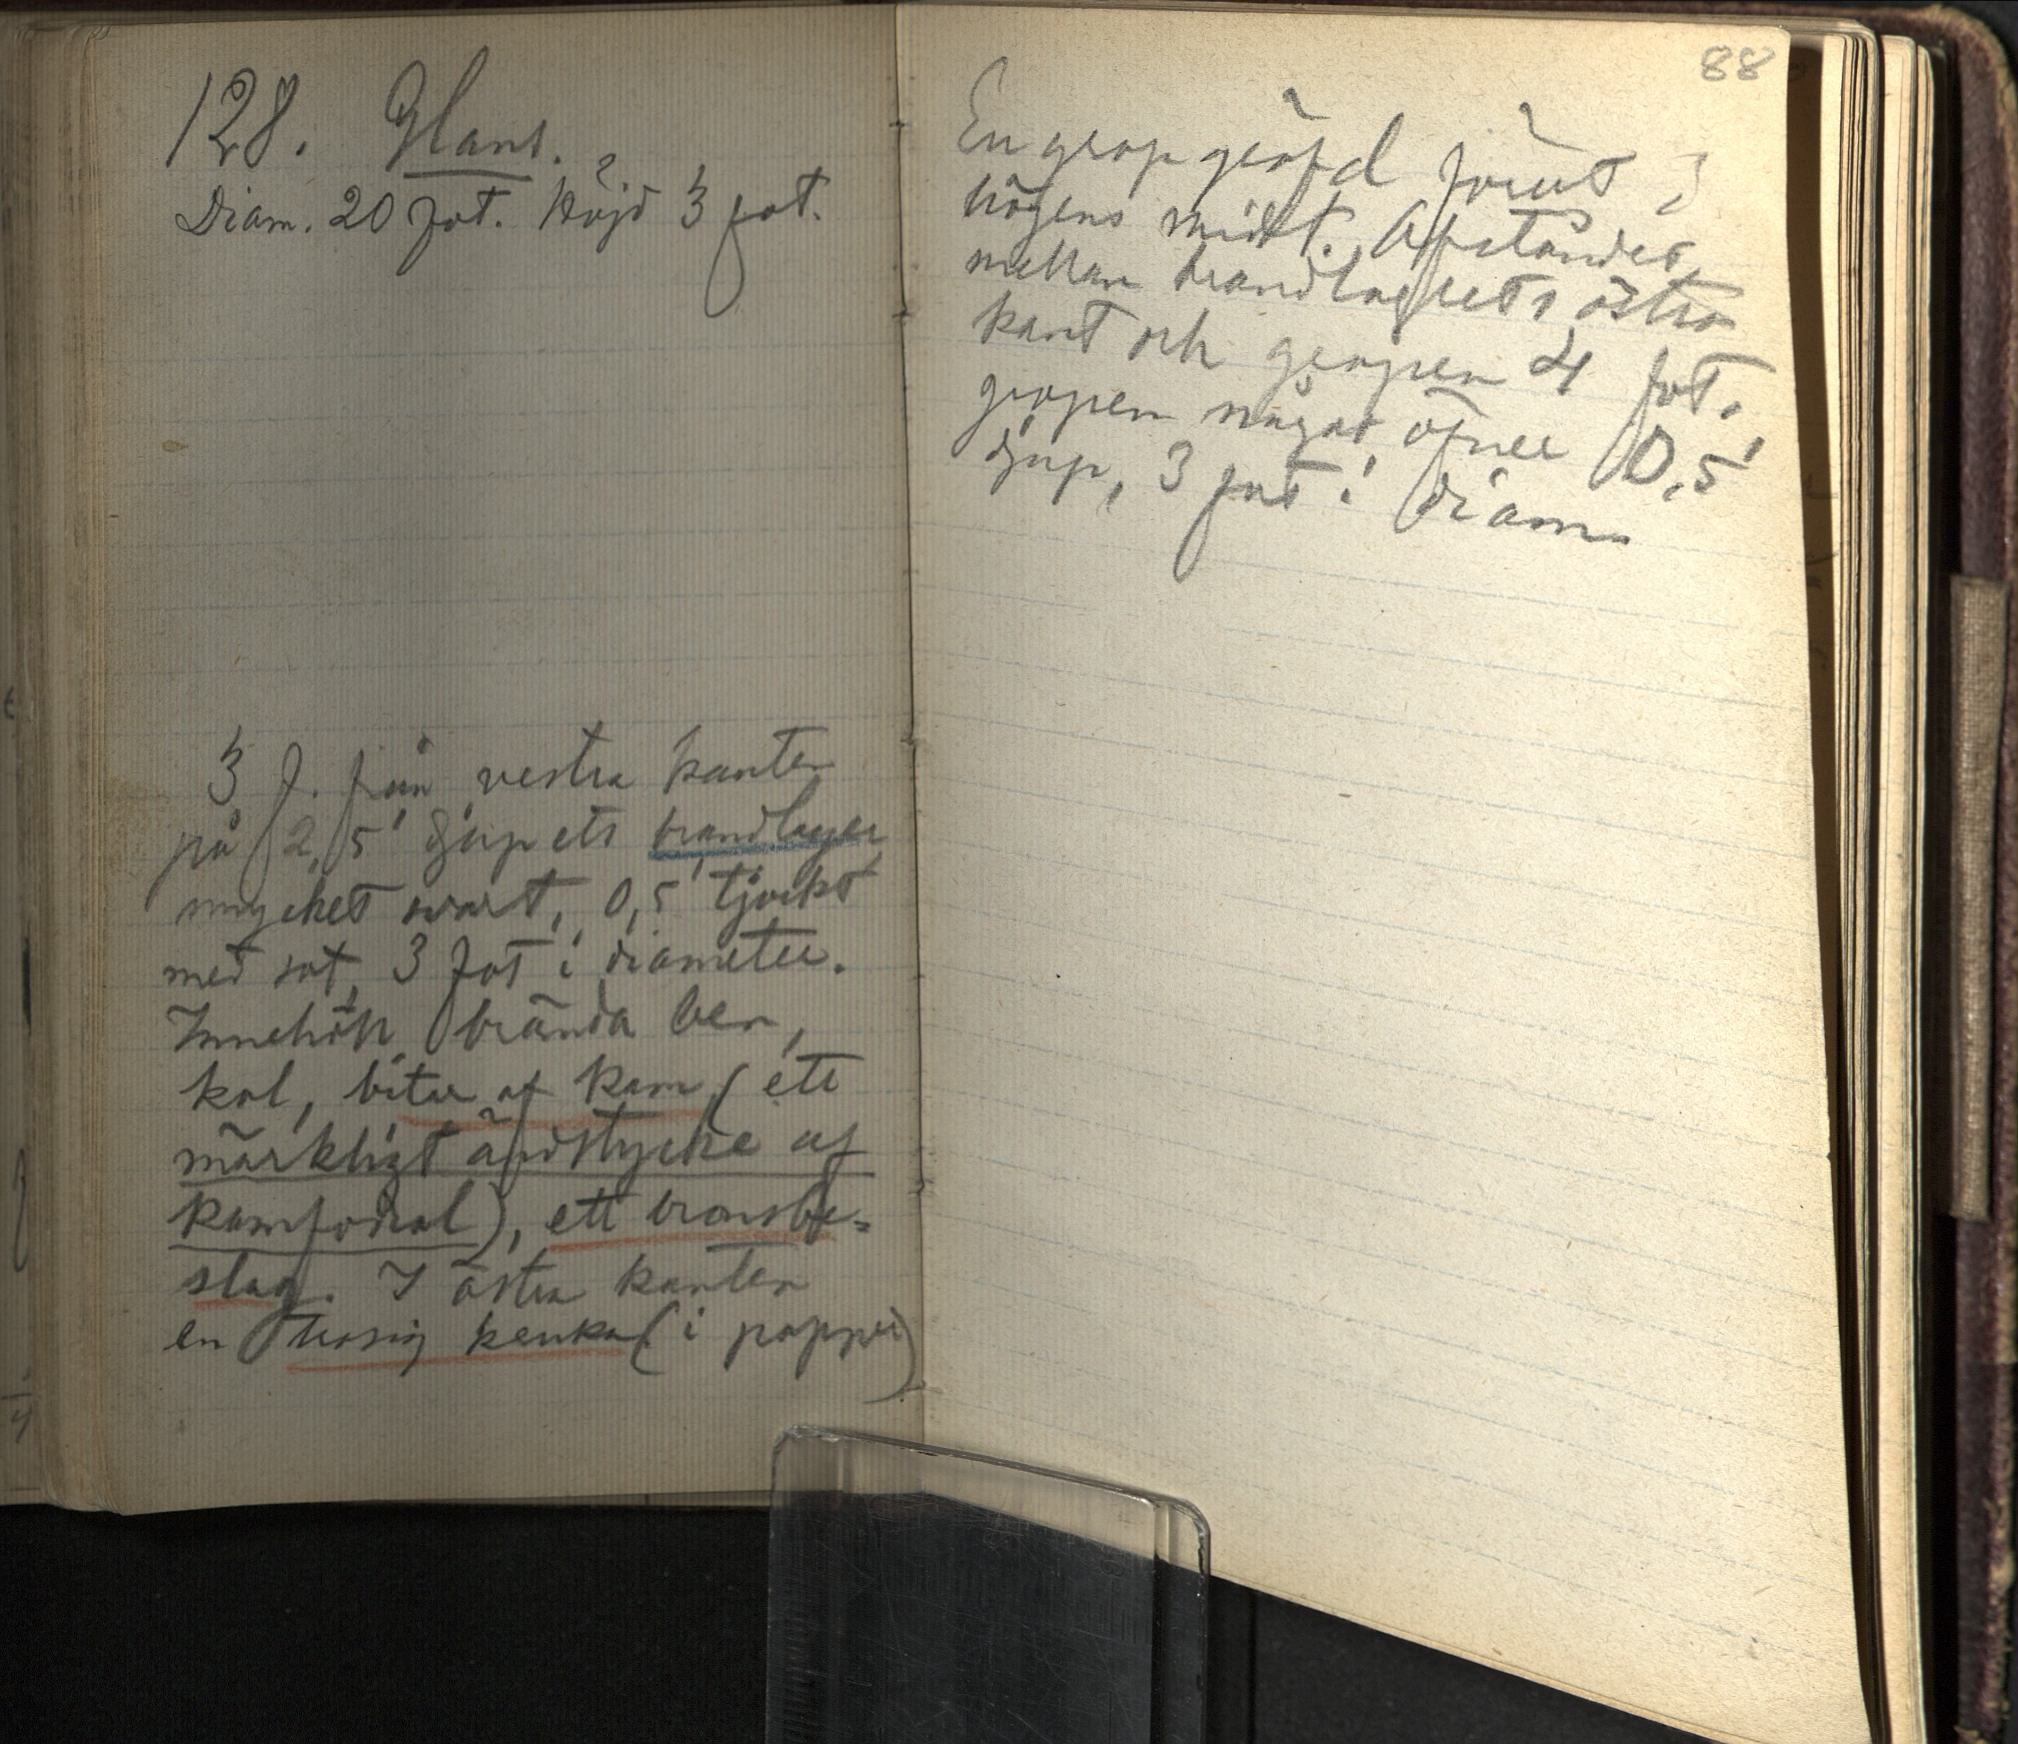 128. Glans.
Diam. 20 fot. Höjd 3 fot.
3 f. från vestra kanten
på 2,5' djup ett brandlager
mycket svart, 0,5' tjockt
med sot, 3 fot i diameter.
Innehöll brända ben,
kol, bitar af kam (ett
märkligt ändstycke af
kamfodral), ett bronsbe-
slag. I östra kanten
en trasig kruka (i papper)
88
En grop gräfd förut i
högens midt. Afståndet
mellan brandlagrets östra
kant och gropen 4 fot.
gropen något öfver 0,5'
djup, 3 fot i diam